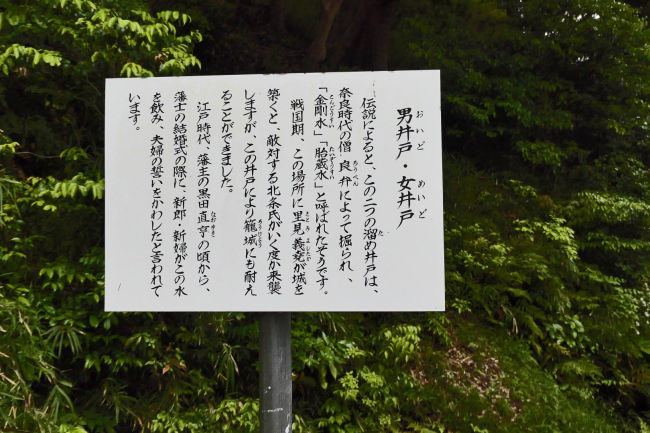 男井戸・女井戸
おいど めいど
伝説によると、この二つの溜め井戸は、
奈良時代の僧 良弁によって掘られ、
「金剛水」「胎蔵水」と呼ばれたそうです。
戦国期、この場所に里見義堯が城を
築くと、敵対する北条氏がいく度か来襲
しますが、この井戸により籠城にも耐え
ることができました。
江戸時代、藩主の黒田直亨の頃から、
藩士の結婚式の際に、新郎・新婦がこの水
を飲み、夫婦の誓いをかわしたと言われて
います。